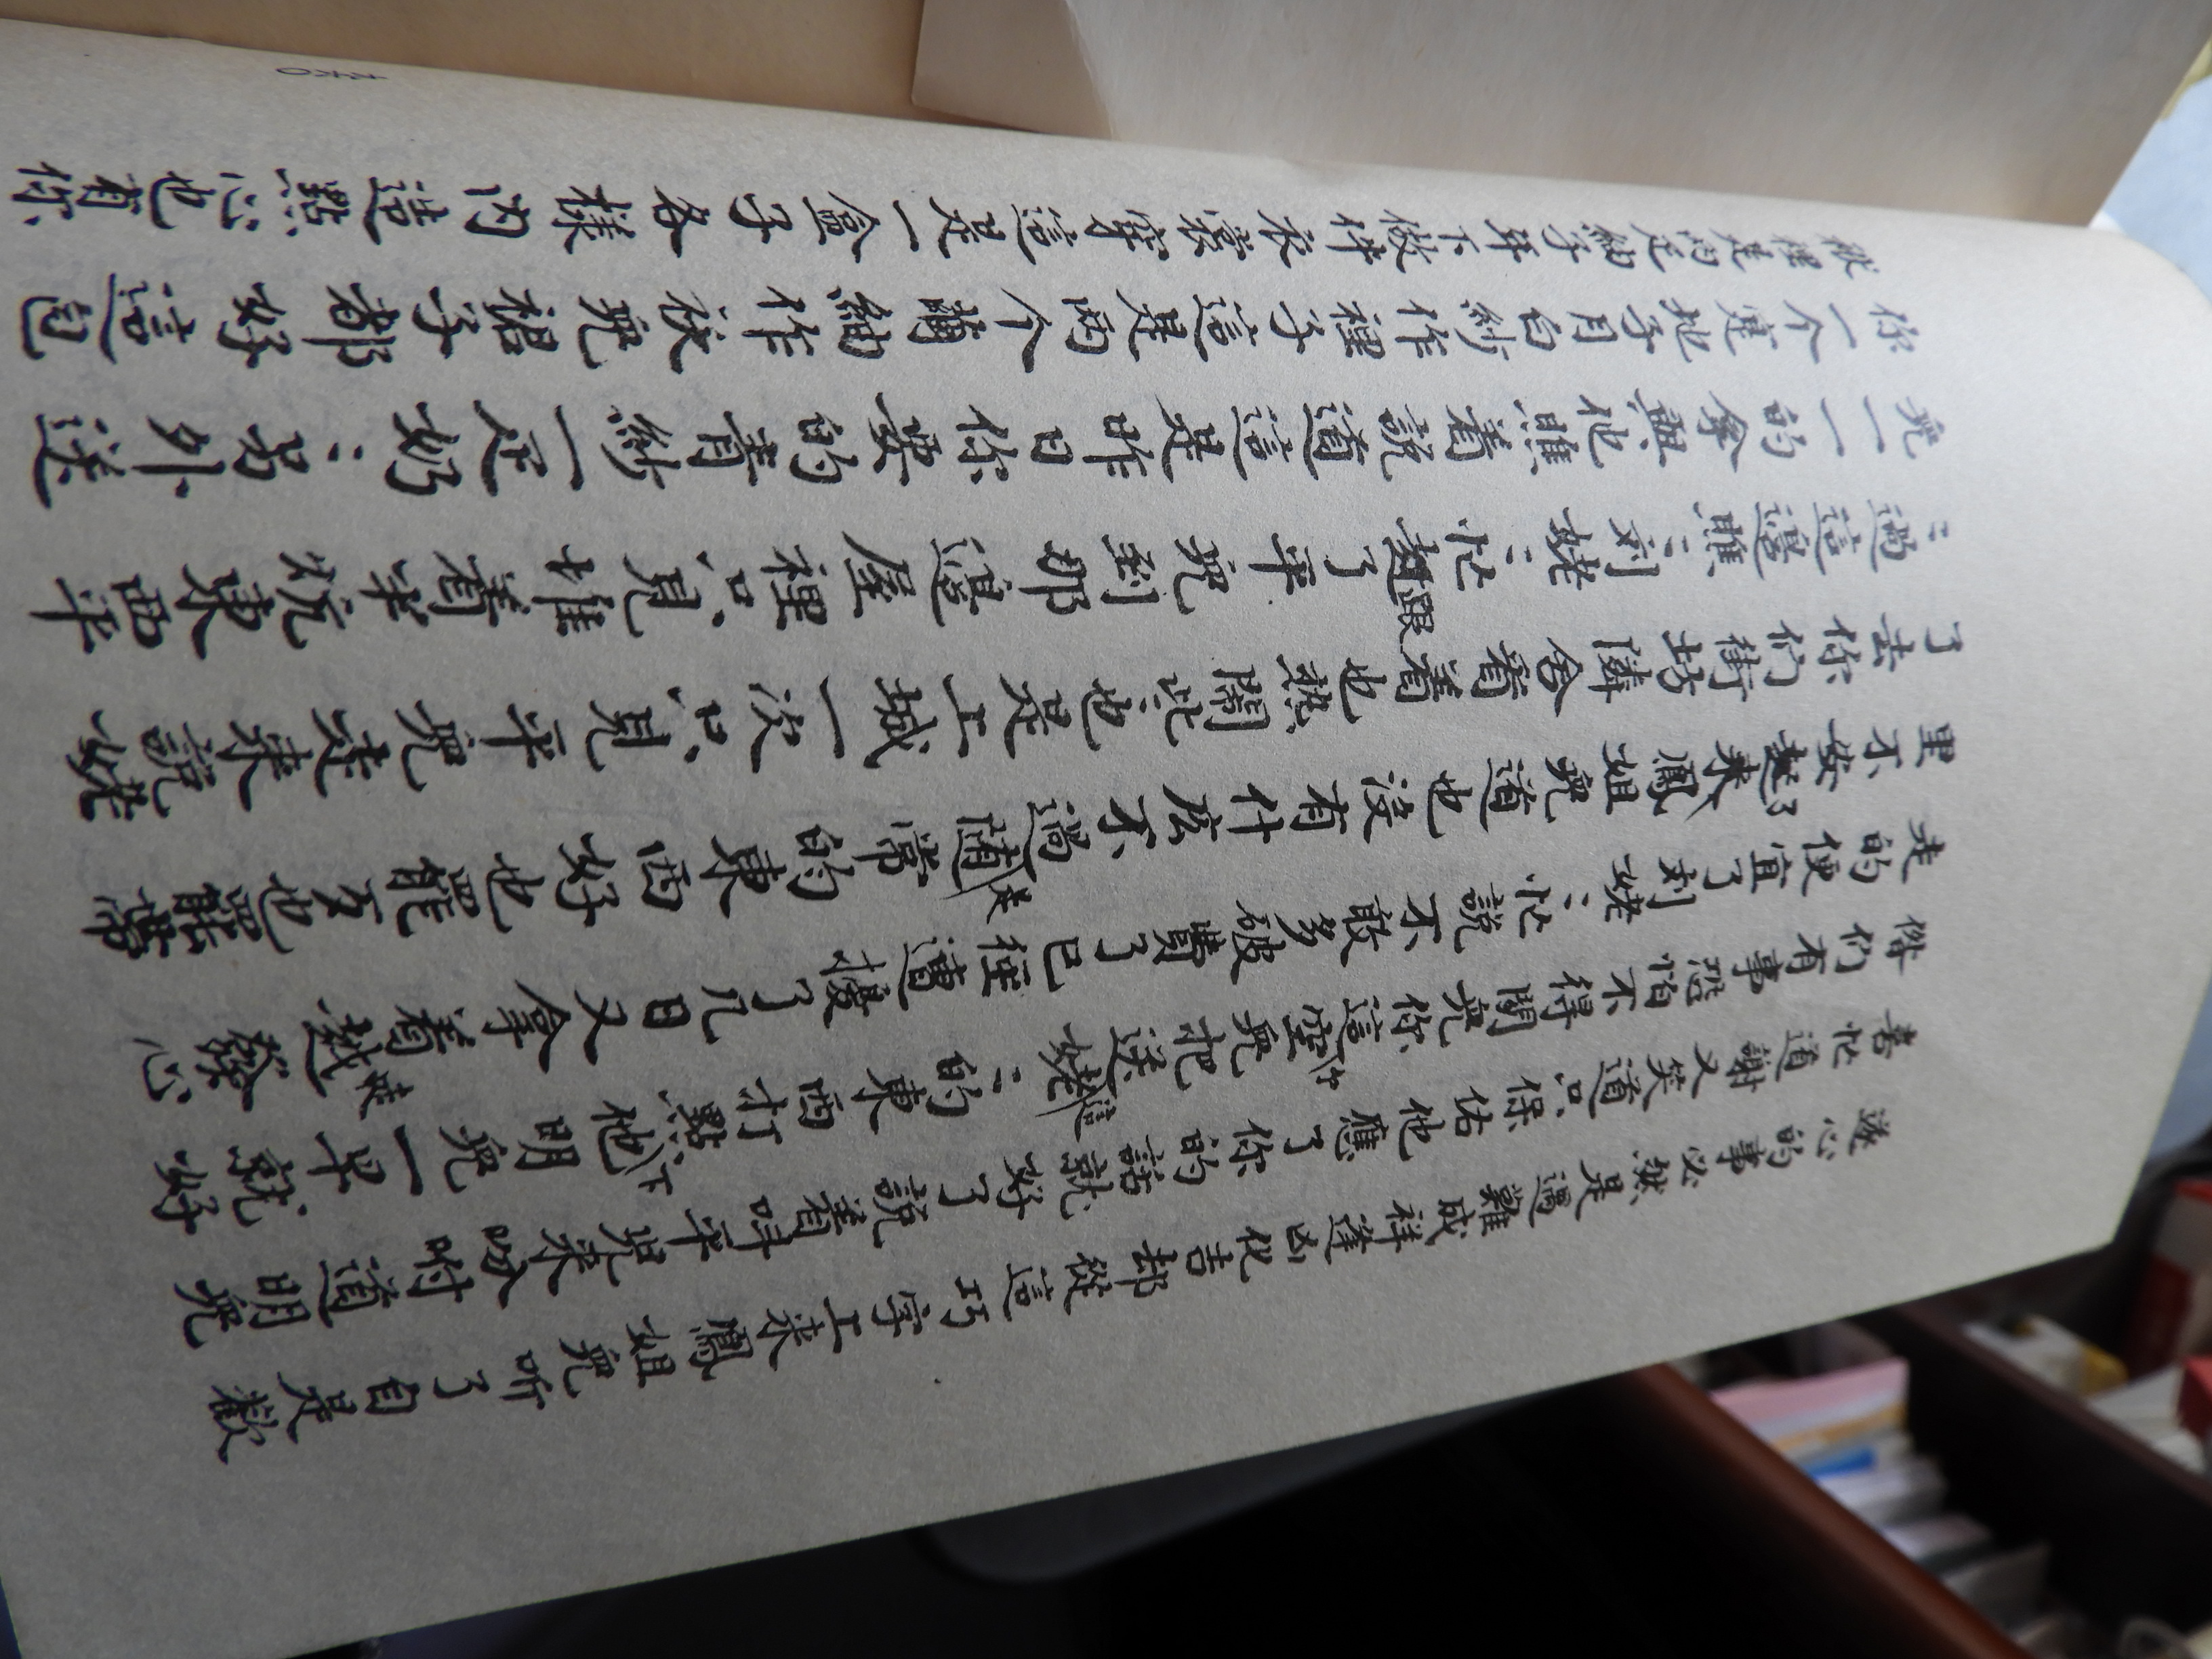 遂心的事必然是遇難成祥逢凶化吉却從這巧字上來鳳姐兒听了自是歡
喜忙道謝又笑道只保佑他應了你的話就好了說着呌平兒來吩咐道明兒
偺們有事恐怕不得閒兒你這空兒把送姥〻的東西打點下他明兒一早就好
走的便宜了刘姥〻忙說不敢多破費了已經遭擾了几日又拿着走越發心
里不安起來了鳳姐兒道也沒有什庅不過隨常的東西好也罷歹也罷帶
了去你們街坊隣舍看着也熱鬧些也是上城一次只見平兒走來說姥
〻過這邊瞧〻刘姥〻忙趕跟了平兒到那邊屋裡只見堆着半炕東西平
兒一一的拿與他瞧着說道這是昨日你要的青紗一疋奶〻另外送
你一个寔地子月白紗作裡子這是兩个繭紬作袄兒裙子都好這包
袱裡是兩疋紬子年下做件衣裳穿這是一盒子各樣内造點心也有你